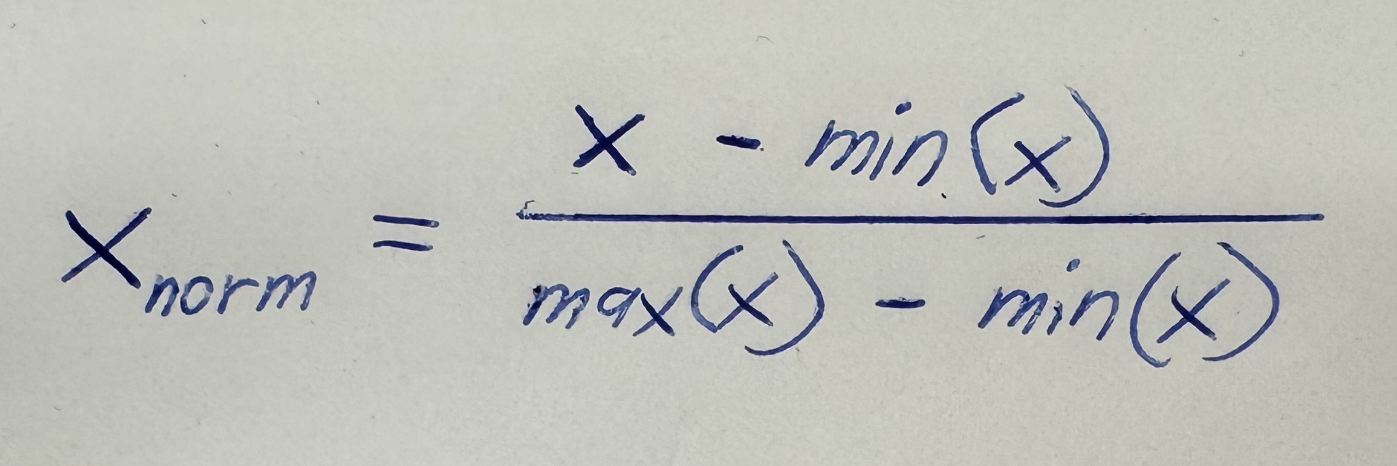 x_norm = (x - min(x)) / (max(x) - min(x))